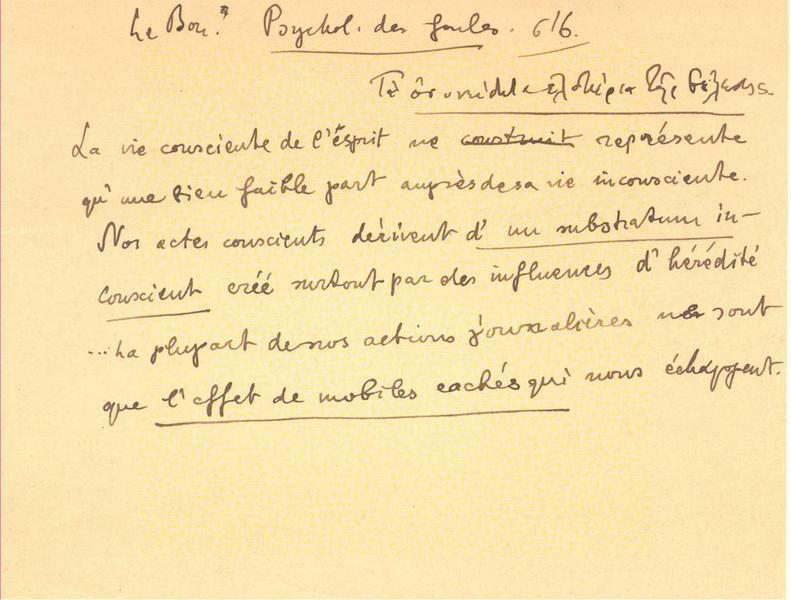 Le Bon. Psychol. des foules. 616.
Τὸ ὂν
La vie consciente de l'esprit ne construit représente
qu'une bien faible part auprès de sa vie inconsciente.
Nos actes conscients dérivent d'un substratum in-
conscient créé surtout par des influences d'hérédité
...La plupart de nos actions journalières ne sont
que l'effet de mobiles cachés qui nous échappent.